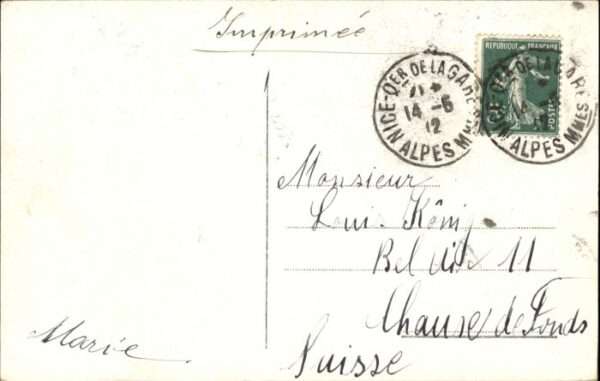 Imprimée
REPUBLIQUE FRANÇAISE
POSTES
NICE-QER DE LA GARE
14-5
12
ALPES MMES
NICE-QER DE LA GARE
ALPES MMES
Monsieur
Louis König
11
Chaux de Fonds
Suisse
Marie